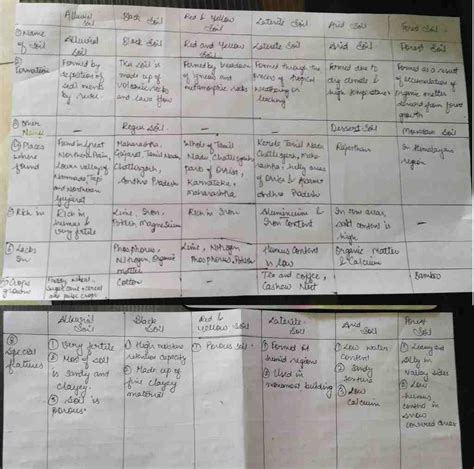 Alluvial Soil
Black Soil
Red & Yellow Soil
Laterite Soil
Arid Soil
Forest Soil
Name of Soil
Alluvial Soil
Black Soil
Red and Yellow Soil
Laterite Soil
Arid Soil
Forest Soil
Formation
Formed by
depositon of
sediments
by river.
This soil is
made up of
volcanic rocks
and lava flow
Formed by
of igneous and
metamorphic rocks
Formed through the
process of tropical
weathering or
leaching
Formed due to
dry climate &
high temperature
Formed as a result
of accumulation of
organic matter
from forest
growth
Other Name
—
Regur Soil
—
—
Dessert Soil
Mountain Soil
Places where found
Found in great
Northern Plain,
lower valley of
Narmada, Tapi
and Northern
Gujarat
Maharashtra,
Gujarat, Tamil Nadu,
Chattisgarh,
Andhra Pradesh
Whole of Tamil
Nadu, Chattisgarh,
parts of Orrisa,
Karnataka,
Maharashtra
Kerala, Tamil Nadu,
Chattisgarh, Maha-
rashtra, hilly areas
of Orrisa & Assam
Andhra Pradesh
Rajasthan
In Himalayan
region
Rich in
Rich in
humus &
very fertile
Lime, Iron,
Potash, Magnesium
Rich in Iron
Aluminium &
Iron Content
In some areas,
salt content is
high
—
Lacks in
—
Phosphorus,
Nitrogen, Organic
matter
Lime, Nitrogen
Phosphorus, Potash
Humus Content
is low
Organic matter
& Calcium
—
Crops grown
wheat,
Sugarcane, cereal
and pulse crops
Cotton
—
Tea and coffee,
Cashew Nut
—
Bamboo
Alluvial Soil
Black Soil
Red & Yellow Soil
Laterite Soil
Arid Soil
Forest Soil
Special features
① Very fertile
② Most of soil
is sandy and
clayey.
③ Soil is
porous.
① High moisture
retention capacity
② Made up of
fine clayey
material
① Porous soil
① Formed in
humid regions
② Used in
monument building
① Low water
content
② Sandy
texture
③ Low
Calcium
① Loamy and
silty in
valley sides
② Low
humus
content in
snow
covered areas